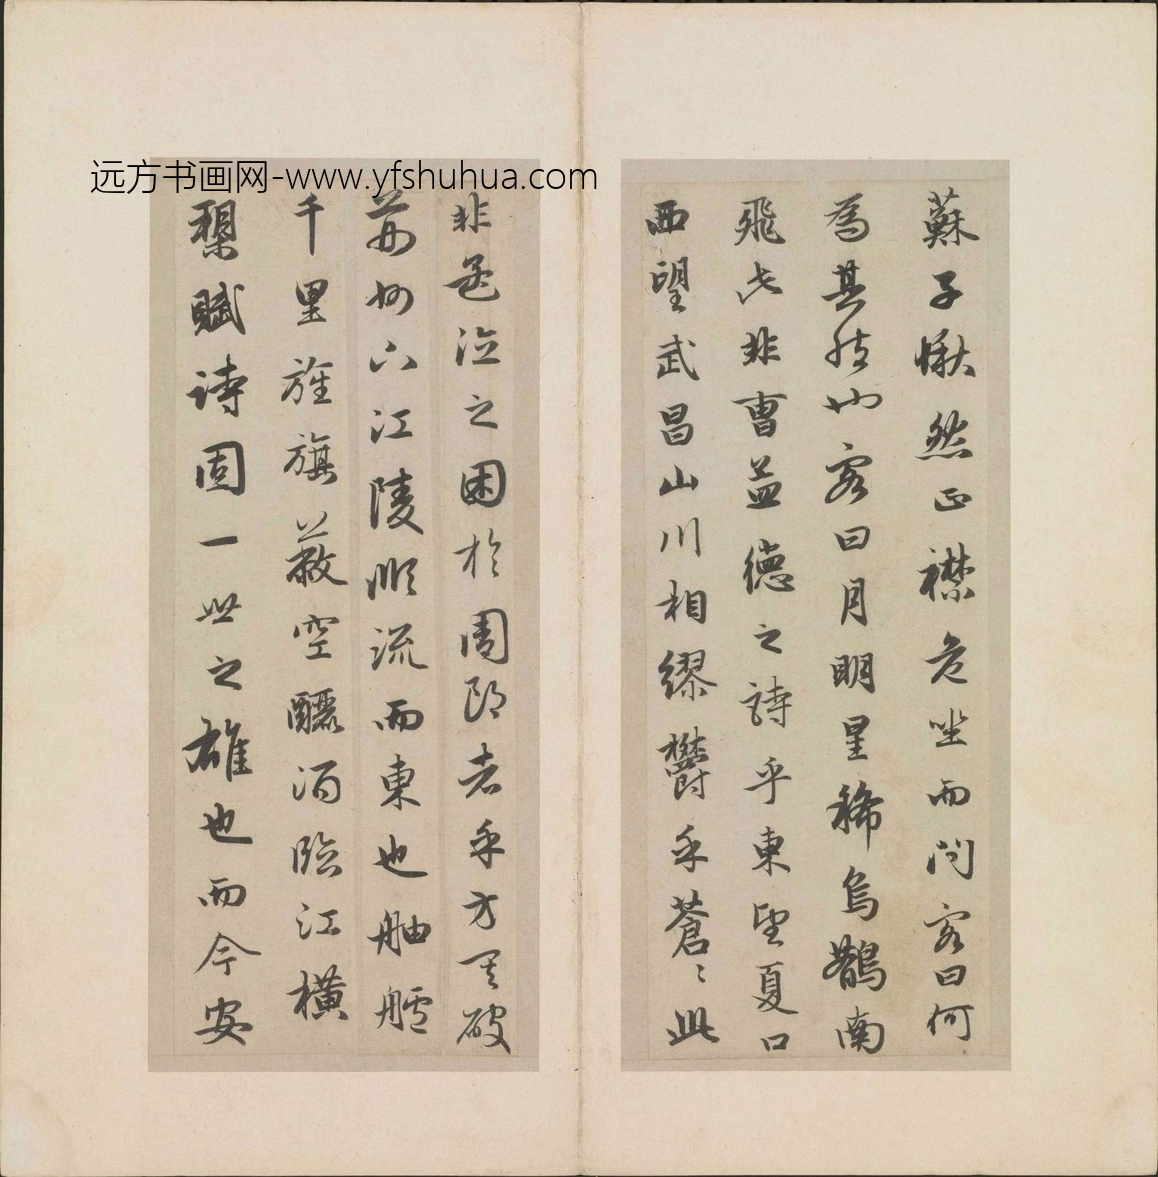 远方书画网-www.yfshuhua.com
蘇子愀然正襟危坐而問客曰何
為其然也客曰月明星稀烏鵲南
飛此非曹孟德之詩乎東望夏口
西望武昌山川相繆鬱乎蒼〻此
非孟德之困於周郎者乎方其破
荊州下江陵順流而東也舳艫
千里旌旗蔽空釃酒臨江橫
槊賦詩固一世之雄也而今安